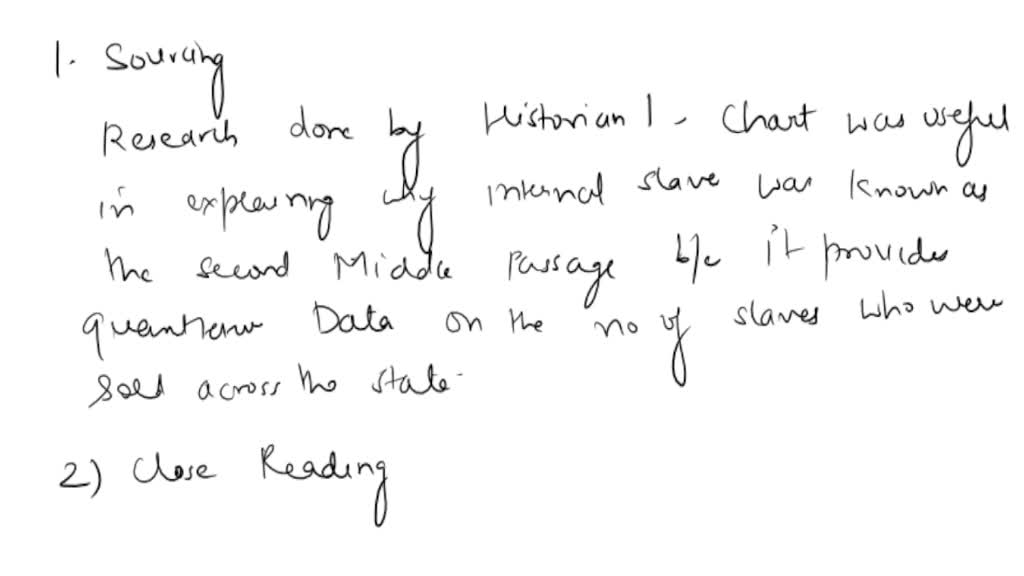 1. Sourcing
Research done by Historian 1. Chart was useful
in explaining why internal slave was known as
the second Middle Passage b/c it provides
quantitative Data on the no of slaves who were
sold across the state.
2) Close Reading